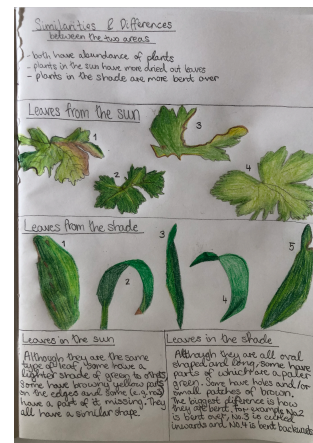 Similarities & Differences
between the two areas
- both have abundance of plants
- plants in the sun have more dried out leaves
- plants in the shade are more bent over
Leaves from the sun
1
2
3
4
Leaves from the shade
1
2
3
4
5
Leaves in the sun
Although they are the same
type of leaf, some have a
lighter shade of green to others.
Some have browny yellow parts
on the edges and some (e.g no3)
have a part of it missing. They
all have a similar shape.
Leaves in the shade
Although they are all oval
shaped and long, some have
parts of which are a paler
green. Some have holes and/or
small patches of brown.
The biggest difference is how
they are bent. For example No.2
is bent over, No.3 is curled
inwards and No.4 is bent backwards